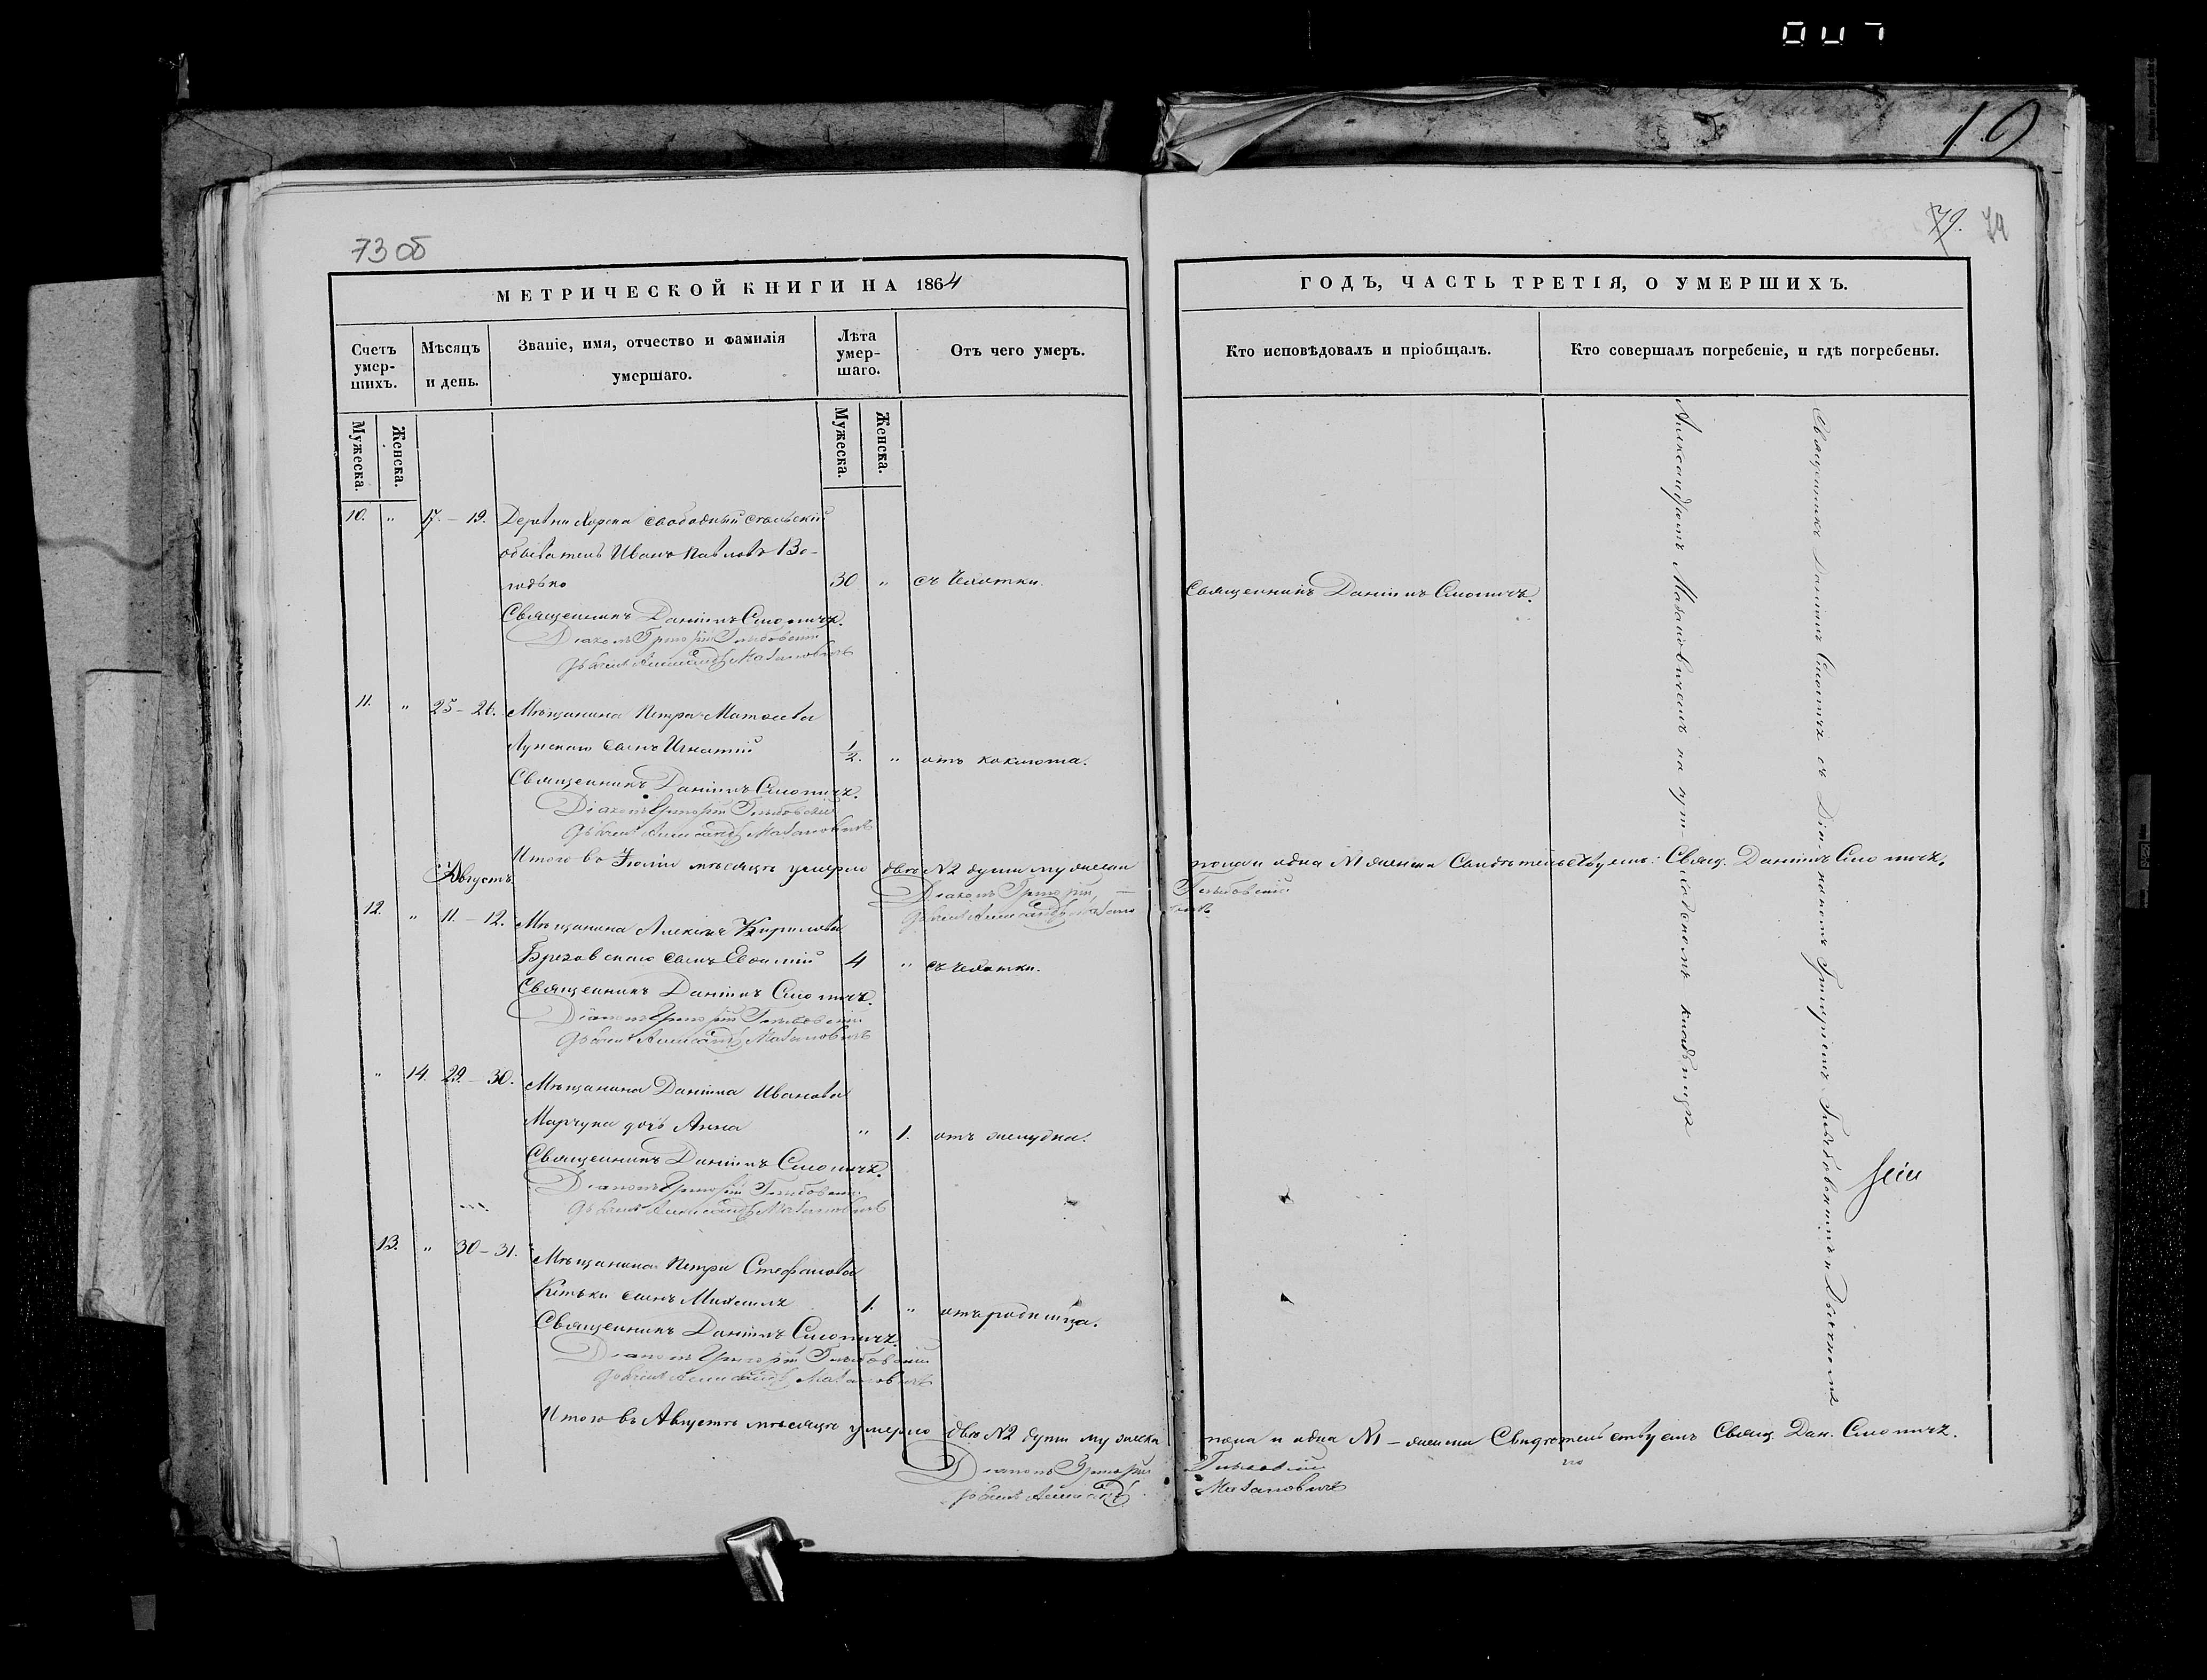 19
73 об
79. 74
МЕТРИЧЕСКОЙ КНИГИ НА 1864
ГОДЪ, ЧАСТЬ ТРЕТІЯ, О УМЕРШИХЪ.
Счетъ умер-шихъ.
Мѣсяцъ и день.
Званіе, имя, отчество и фамилія умершаго.
Лѣта умер-шаго.
Отъ чего умеръ.
Кто исповѣдовалъ и пріобщалъ.
Кто совершалъ погребеніе, и гдѣ погребены.
Мужеска.
Женска.
Мужеска.
Женска.
10. " 17.-19. Деревни Хорска свободный сельскій
обыватель Иванъ Павловъ Во-
лодько 30 " съ чахотки. Священникъ Даніилъ Смоличъ.
Священникъ Даніилъ Смоличъ.
Діаконъ Григорій Глѣбовскій
Дьячекъ Александръ Мазановичъ
11. " 25-26. Мѣщанина Петра Матѳеева
Лунскаго сынъ Игнатій 1/2. " отъ коклюша.
Священникъ Даніилъ Смоличъ.
Діаконъ Григорій Глѣбовскій
Дьячекъ Александръ Мазановичъ
Итого въ Іюлѣ мѣсяцѣ умерло двѣ №2 души мужеска пола и одна №1 женска Свидѣтельствуемъ: Свящ. Даніилъ Смоличъ.
Діаконъ Григорій Глѣбовскій
Дьячекъ Александръ Мазановичъ
Августъ
12. " 11.-12. Мѣщанина Алексія Кирилова
сынъ Евѳимій 4 " съ чахотки.
Священникъ Даніилъ Смоличъ.
Діаконъ Григорій Глѣбовскій
Дьячекъ Александръ Мазановичъ
" 14. 29.-30. Мѣщанина Даніила Иванова
Марчука дочь Анна " 1. отъ желудка.
Священникъ Даніилъ Смоличъ.
Діаконъ Григорій Глѣбовскій
Дьячекъ Александръ Мазановичъ
13. " 30-31. Мѣщанина Петра Стефанова
сынъ Михаилъ 1. " отъ родимца.
Священникъ Даніилъ Смоличъ.
Діаконъ Григорій Глѣбовскій
Дьячекъ Александръ Мазановичъ
Итого въ Августѣ мѣсяцѣ умерло двѣ №2 души мужеска пола и одна №1-женска Свидѣтельствуемъ Свящ. Дан. Смоличъ.
Діаконъ Григорій Глѣбовскій
Дьячекъ Александръ Мазановичъ
Священникъ Даніилъ Смоличъ съ Діакономъ Григоріемъ Глѣбовскимъ и Дьячкомъ
Александромъ Мазановичемъ на кладбищѣ